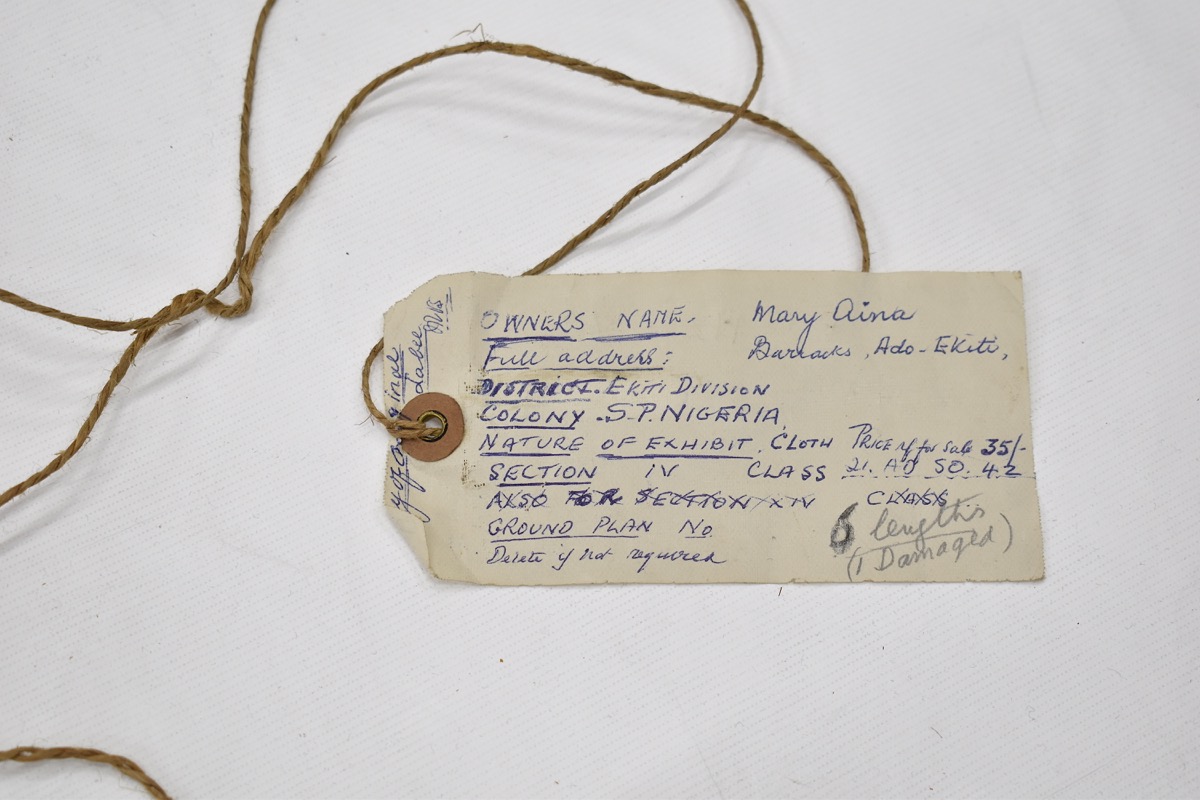 y of original
label
OWNERS NAME. Mary Aina
Full address: Barracks, Ado-Ekiti,
DISTRICT. EKITI DIVISION
COLONY. S.P. NIGERIA
NATURE OF EXHIBIT. CLOTH PRICE if for sale 35/-
SECTION IV CLASS 21. AD SO. 42
ALSO FOR SECTION XIV CLASS
GROUND PLAN No.
Delete if not required
6 lengths
(1 Damaged)